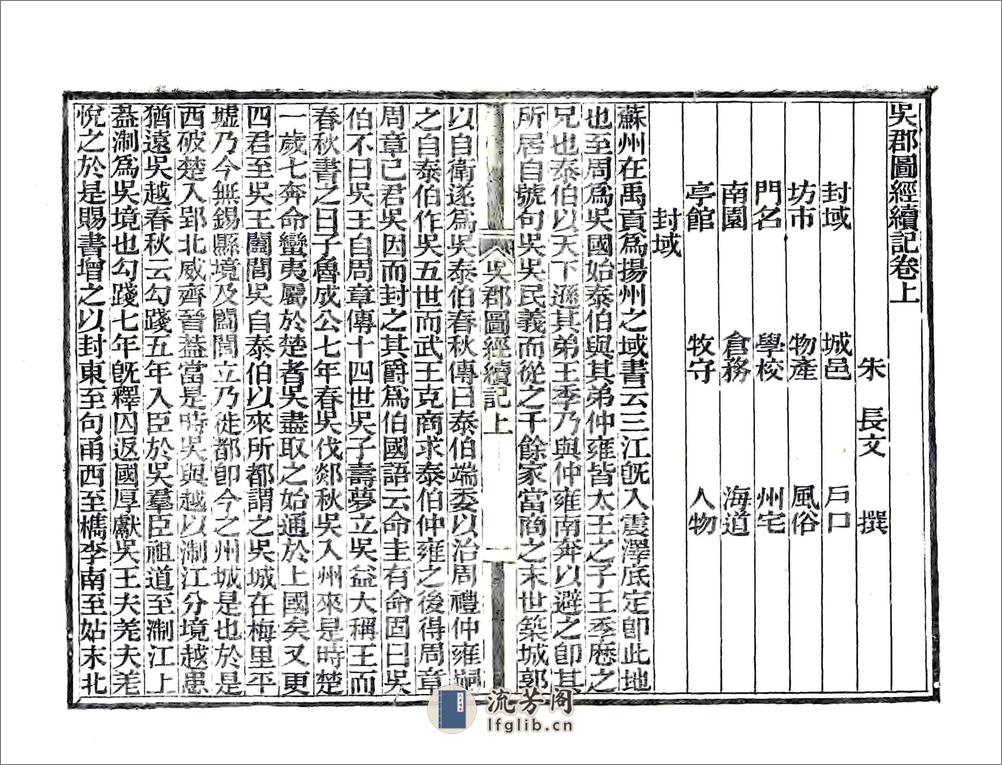 吳郡圖經續記卷上
朱 長文 撰
封域 城邑 戶口
坊市 物產 風俗
門名 學校 州宅
南園 倉務 海道
亭館 牧守 人物
封域
蘇州在禹貢爲揚州之域書云三江旣入震澤底定卽此地
也至周爲吳國始泰伯與其弟仲雍皆太王之子王季歷之
兄也泰伯以天下遜其弟王季乃與仲雍南奔以避之卽其
所居自號句吳吳民義而從之千餘家當商之末世築城郭
吳郡圖經續記上
一
以自衛遂爲吳泰伯春秋傳曰泰伯端委以治周禮仲雍嗣
之自泰伯作吳五世而武王克商求泰伯仲雍之後得周章
周章已君吳因而封之其爵爲伯國語云命圭有命固曰吳
伯不曰吳王自周章傳十四世吳子壽夢立吳益大稱王而
春秋書之曰子魯成公七年春吳伐郯秋吳入州來是時楚
一歲七奔命蠻夷屬於楚者吳盡取之始通於上國矣又更
四君至吳王闔閭吳自泰伯以來所都謂之吳城在梅里平
墟乃今無錫縣境及闔閭立乃徙都卽今之州城是也於是
西破楚入郢北威齊晉葢當是時吳與越以淛江分境越患
猶遠吳越春秋云勾踐五年入臣於吳羣臣祖道至淛江上
葢淛爲吳境也勾踐七年旣釋囚返國厚獻吳王夫羌夫羌
悅之於是賜書增之以封東至句甬西至檇李南至姑末北
流芳阁
lfglib.cn